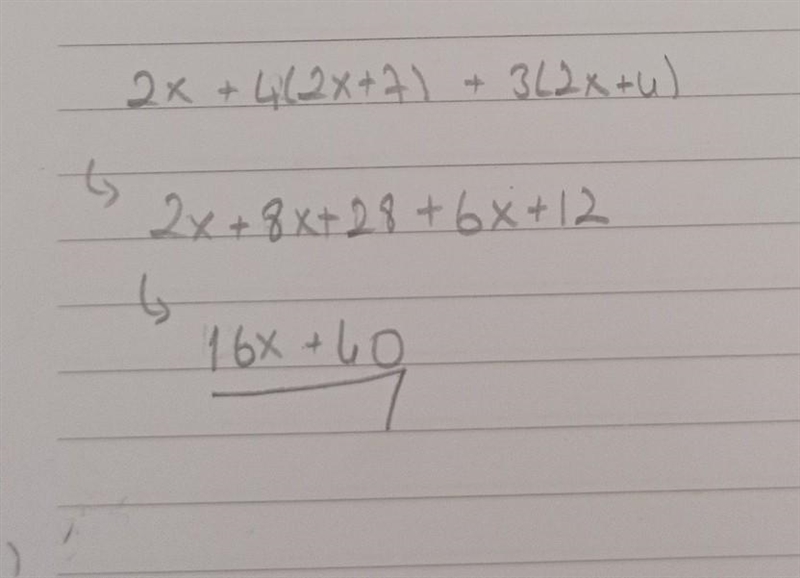 2x + 4(2x+7) + 3(2x+4)
↳ 2x + 8x + 28 + 6x + 12
↳ 16x + 40